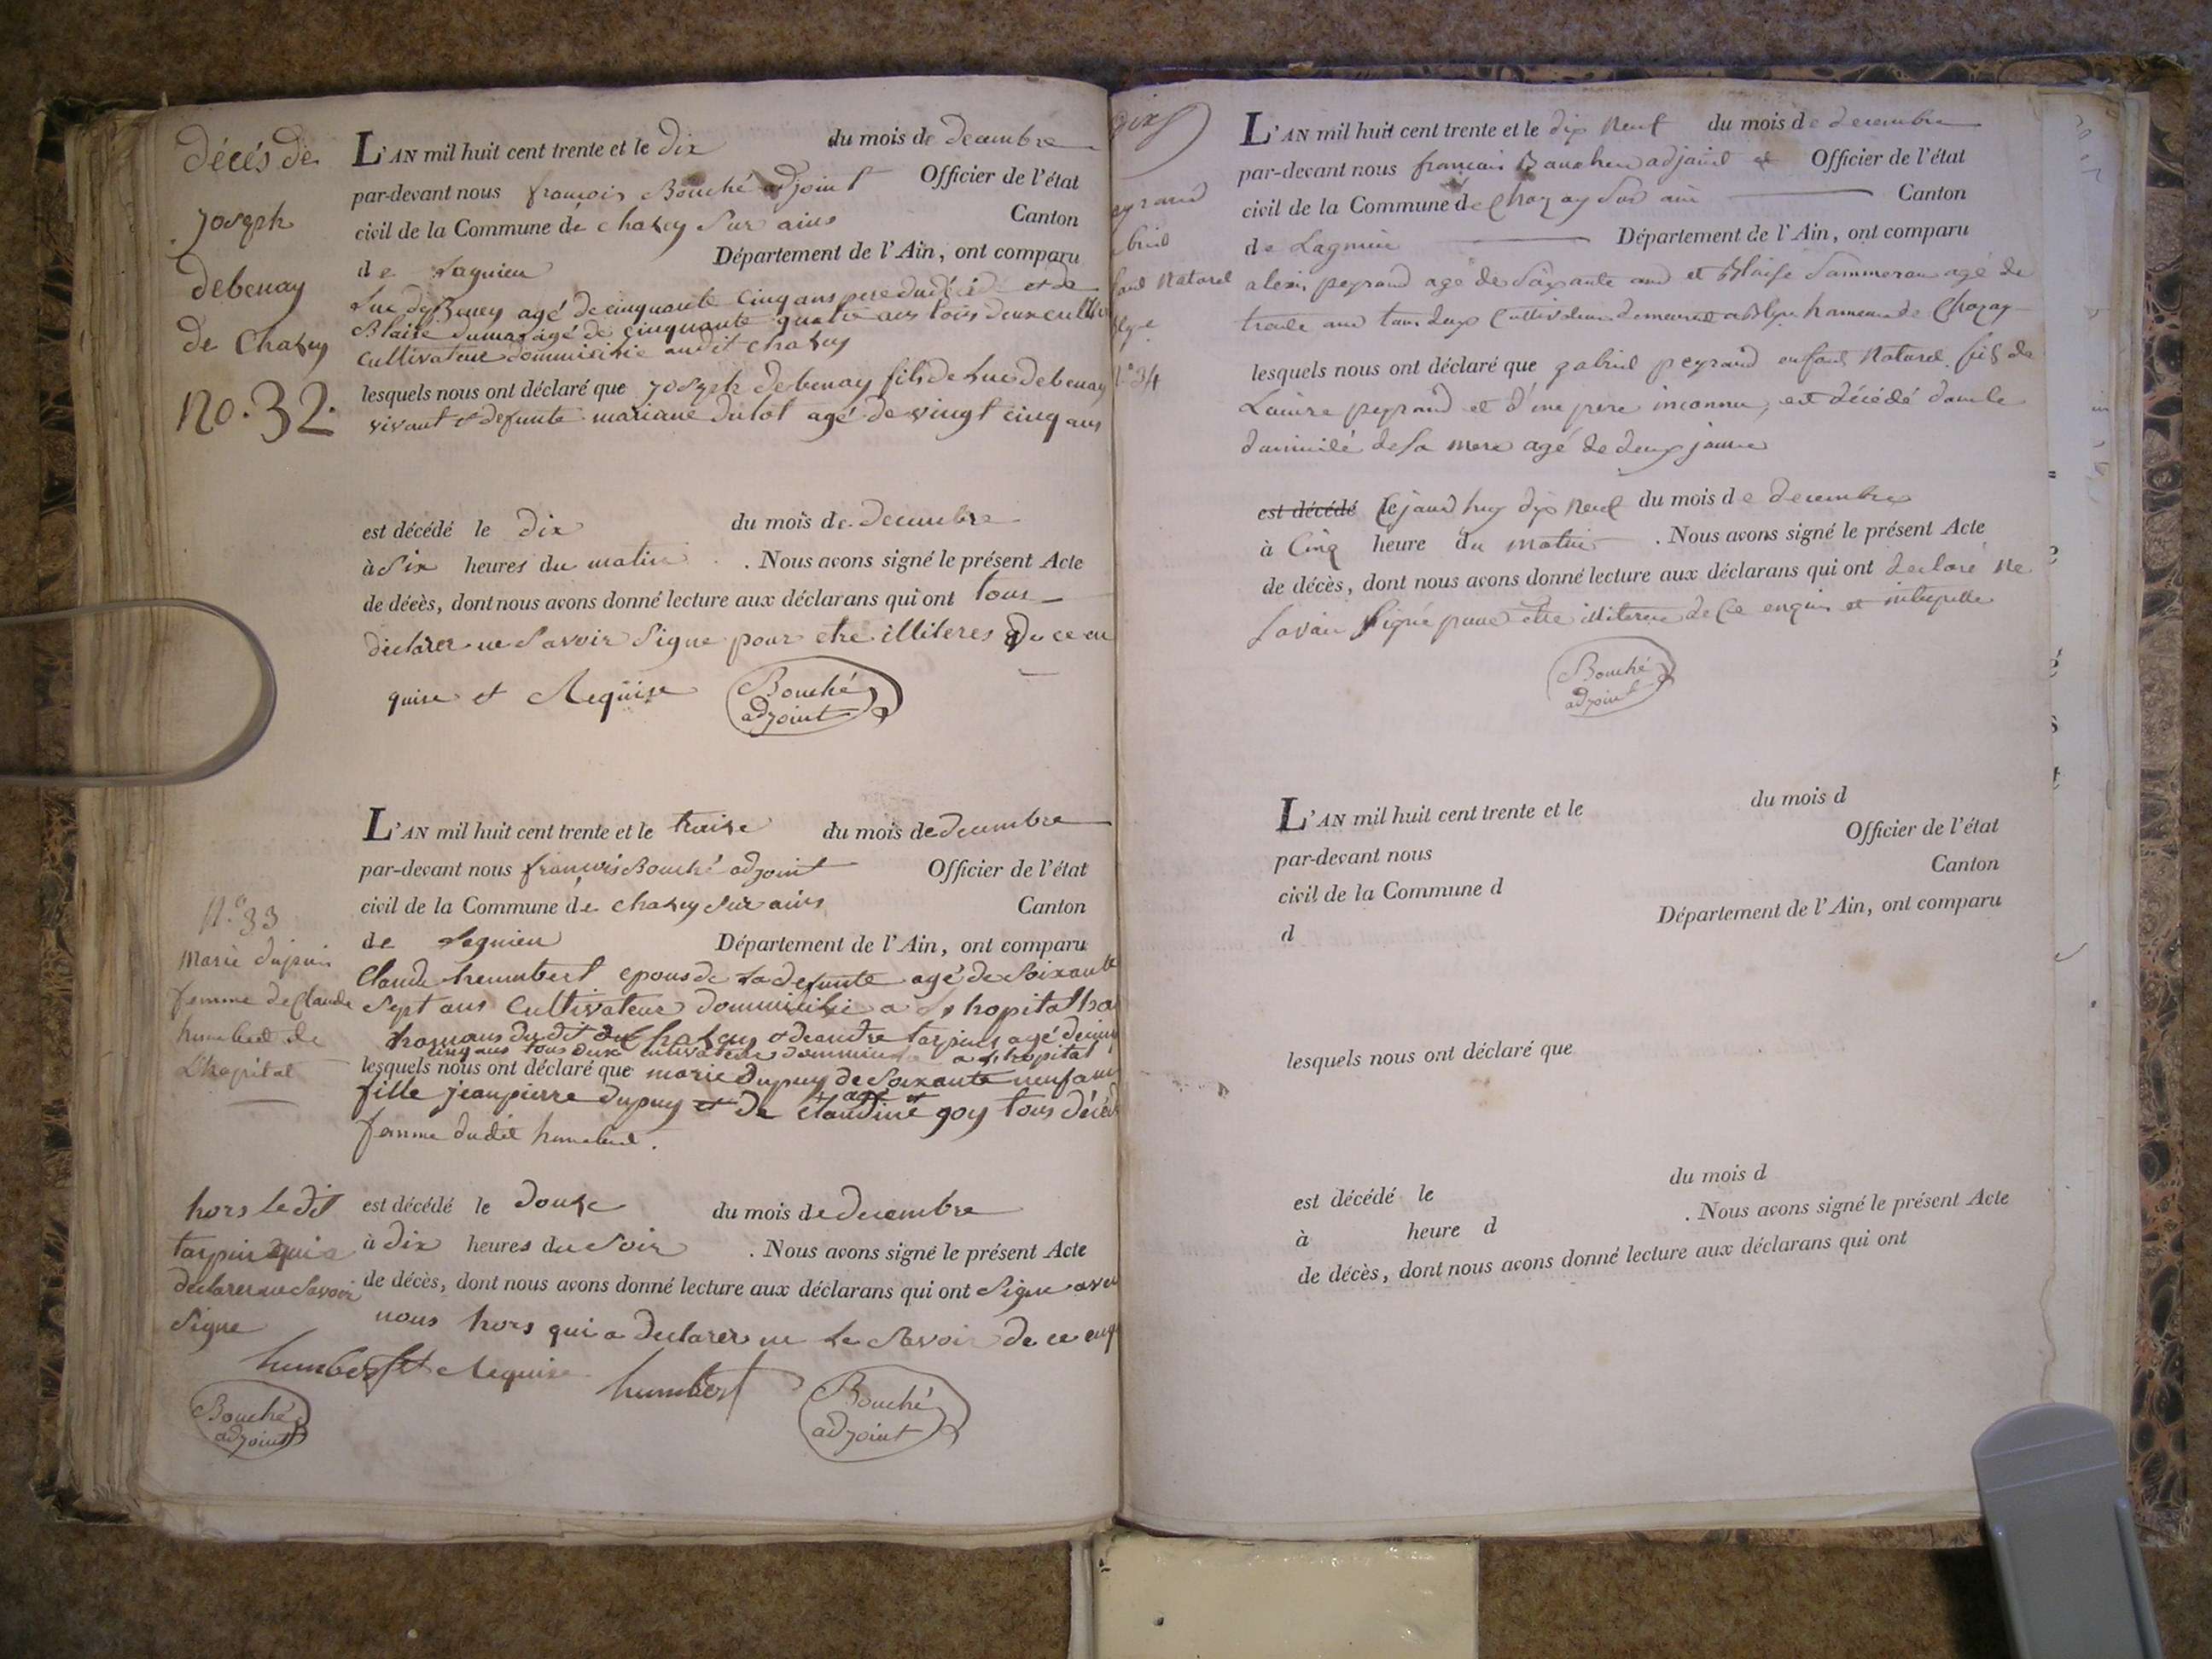 décés de
joseph
debenay
de Chazey
no. 32.
L'AN mil huit cent trente et le dix du mois de decembre
par-devant nous françois Bouché adjoint Officier de l'état
civil de la Commune de chazey sur ains Canton
de Lagnieu Département de l'Ain, ont comparu
Luc deBeney agé de cinquante cinq ans pere du et de
Blaise dumas agé de cinquante quatre ans tous deux
cultivateur dommicilié audit chazey
lesquels nous ont déclaré que joseph debenay fils de Luc debenay
vivant et defunte mariane dulot agé de vingt cinq ans
est décédé le dix du mois de decembre
à six heures du matin . Nous avons signé le présent Acte
de décès, dont nous avons donné lecture aux déclarans qui ont tous
declarer ne savoir signe pour etre illiteres de ce en
quise et Requise Bouché
adjoint
N.o 33
Marie dupuis
femme de Claude
humbert de
Lhopital
L'AN mil huit cent trente et le traize du mois de decembre
par-devant nous françois Bouché adjoint Officier de l'état
civil de la Commune de chazey sur ains Canton
de Lagnieu Département de l'Ain, ont comparu
Claude humbert epous de La defunte agé de soixante
sept ans cultivateur dommicilié a Lhopital
hamaus dudit chazey et deandre tarpin agé de
cinq ans tous deux cultivateur a Lhopital
lesquels nous ont déclaré que marie dupuy de soixante neuf ans
agé et
fille jeanpierre dupuy et de claudine goy tous
femme dudit humbert.
hors le dit
tarpin qui a
declarer ne savoir
signe
est décédé le douze du mois de decembre
à dix heures du soir . Nous avons signé le présent Acte
de décès, dont nous avons donné lecture aux déclarans qui ont signe avec
nous hors qui a declarer ne le savoir de ce enq
humbert et Requise humbert
Bouché
adjoint
Bouché
adjoint
eyrand
briel
fant Naturel
N.o 34
L'AN mil huit cent trente et le dix neuf du mois de decembre
par-devant nous françois adjoint et Officier de l'état
civil de la Commune de Chazay sur ain Canton
de Lagnieu Département de l'Ain, ont comparu
alexis peyrand agé de soixante ans et Blaise Sammeran agé de
trente ans tous deux Cultivateurs demeurant a hameau de Chazay
lesquels nous ont déclaré que gabriel peyrand enfant Naturel fils de
Laure peyrand et d'une pere inconnu, est décédé dans le
domicile de sa mere agé de deux jours
est décédé le jaurd huy dix neuf du mois de decembre
à Cinq heure du matin . Nous avons signé le présent Acte
de décès, dont nous avons donné lecture aux déclarans qui ont declaré ne
savoir signé pour etre illiteres de ce enquis et interpelle
Bouché
adjoint
L'AN mil huit cent trente et le du mois d
par-devant nous Officier de l'état
civil de la Commune d Canton
d Département de l'Ain, ont comparu
lesquels nous ont déclaré que
est décédé le du mois d
à heure d . Nous avons signé le présent Acte
de décès, dont nous avons donné lecture aux déclarans qui ont